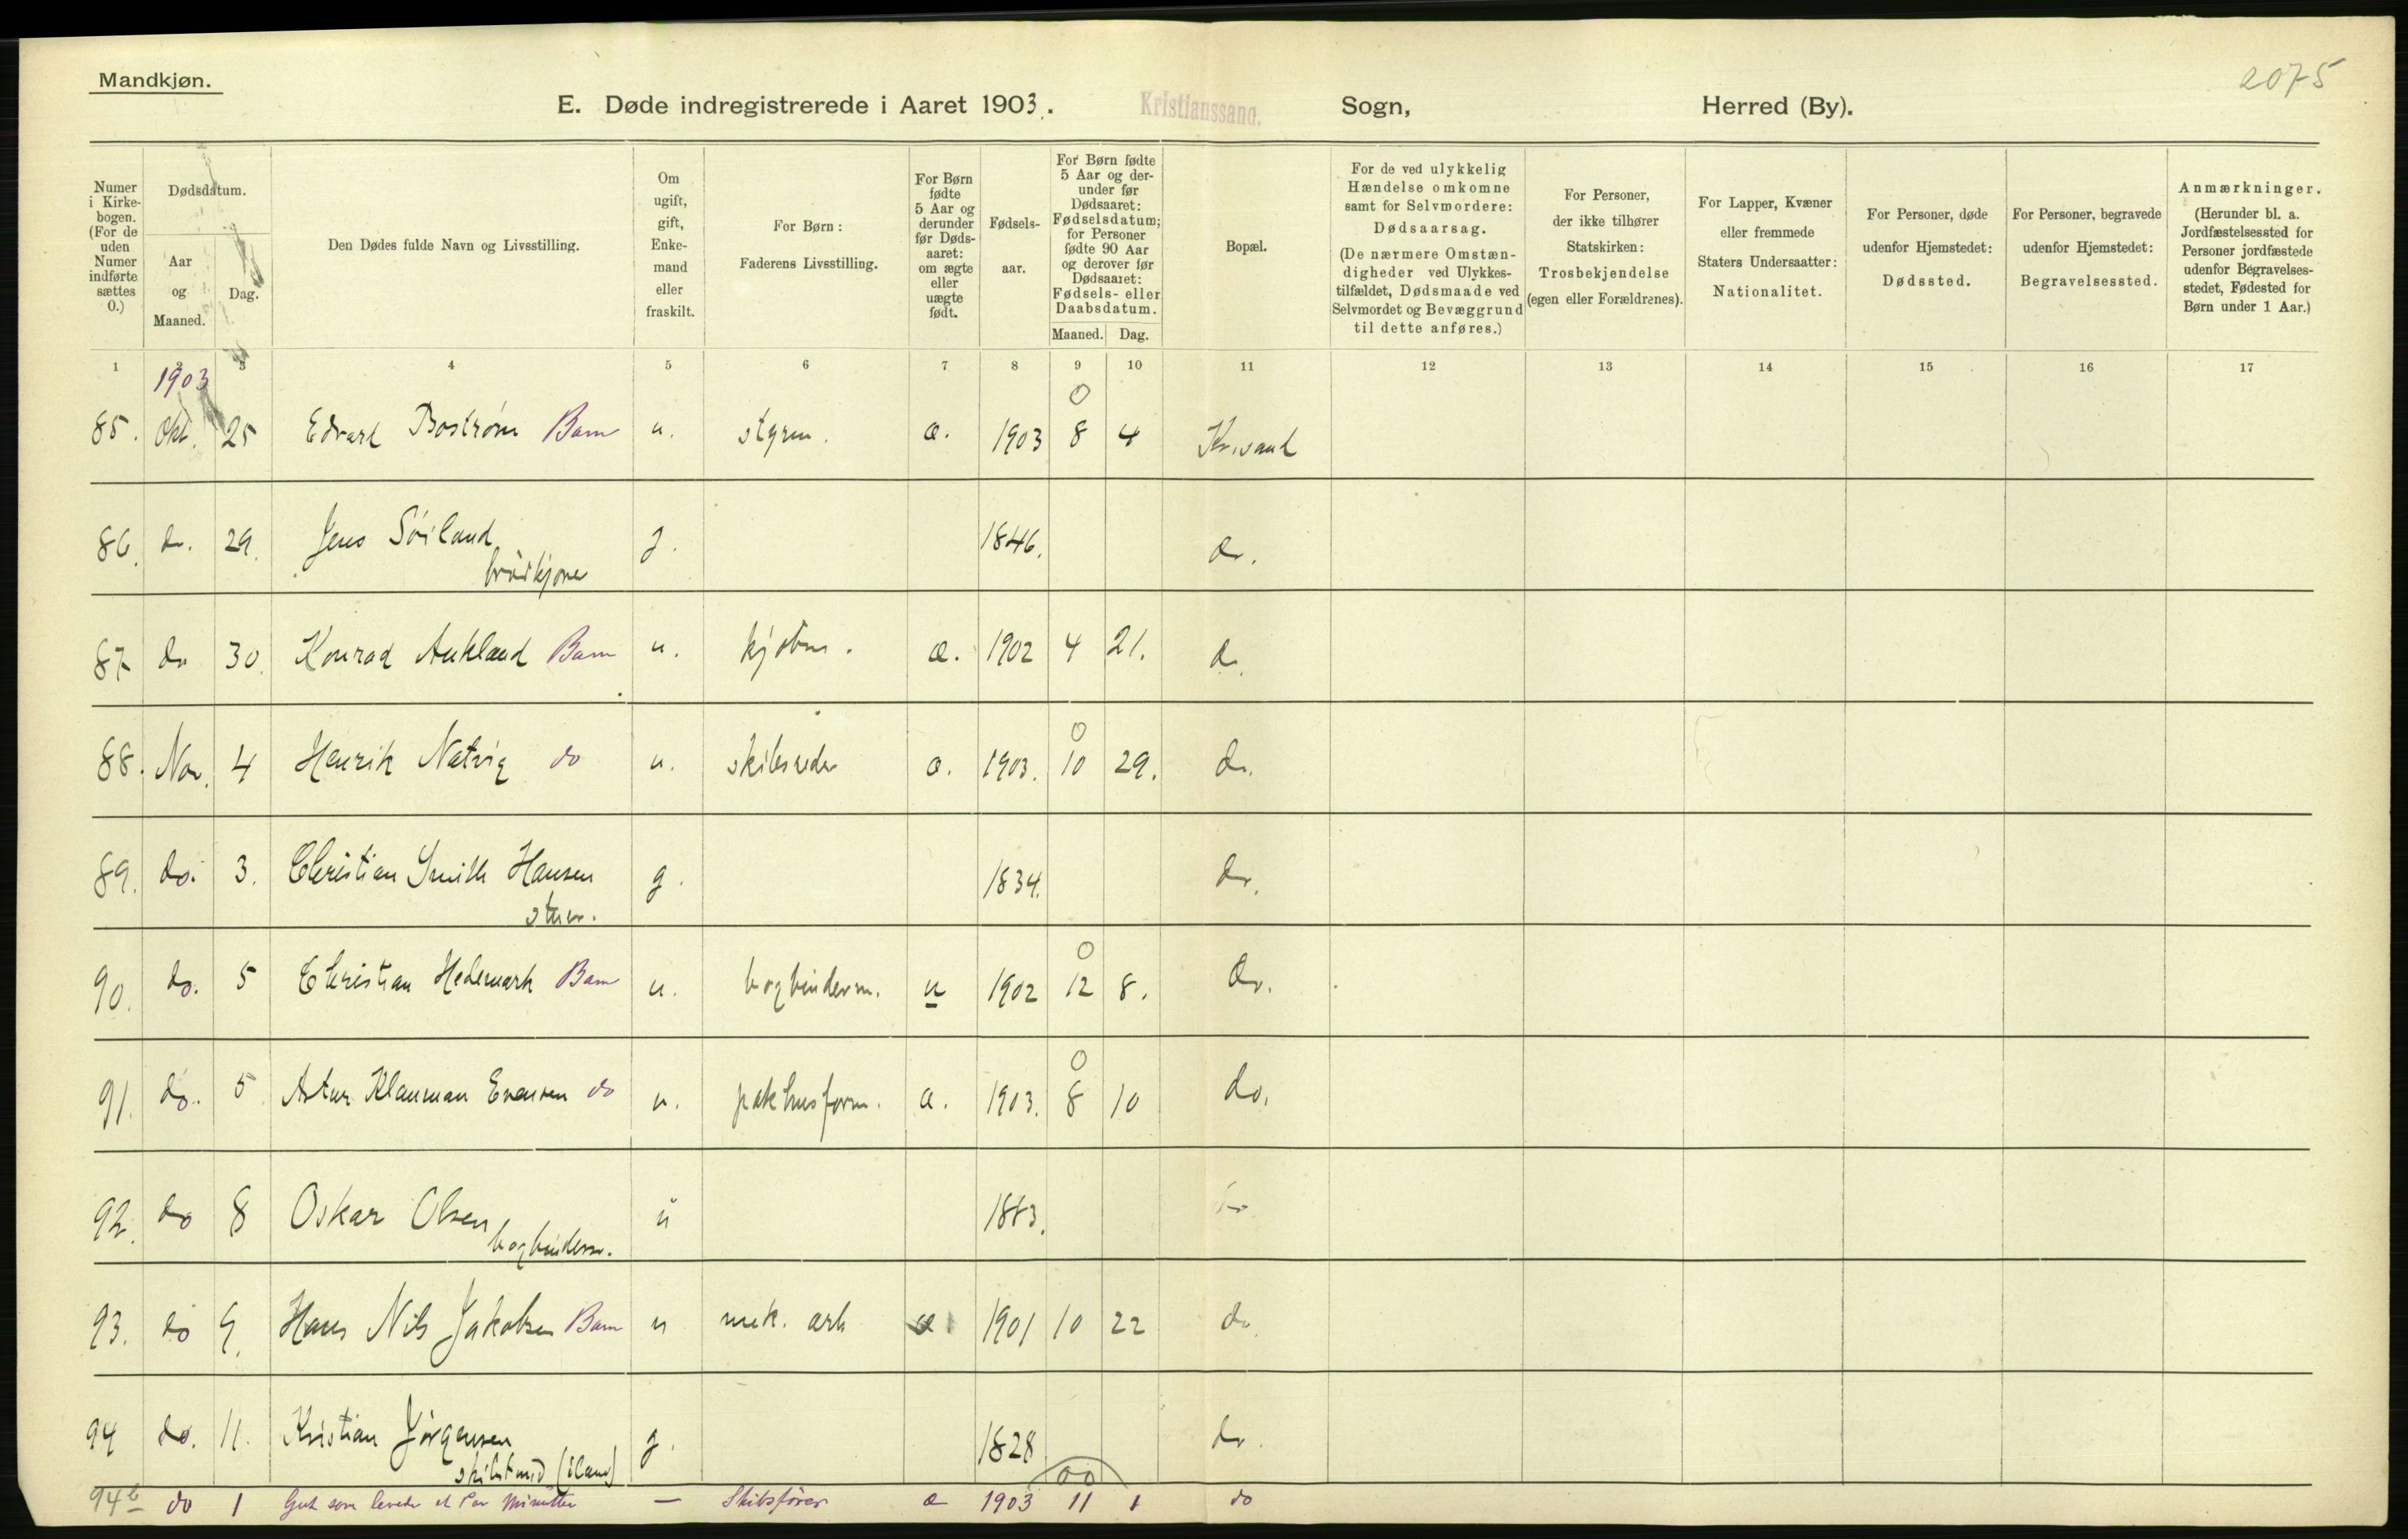 Mandkjøn.
2075
E. Døde indregistrerede i Aaret 1903. Kristianssand. Sogn, Herred (By).
Numer i Kirkebogen. (For de uden Numer indførte sættes 0.)
Dødsdatum.
Aar og Maaned.
Dag.
Den Dødes fulde Navn og Livsstilling.
Om ugift, gift, Enkemand eller fraskilt.
For Børn: Faderens Livsstilling.
For Børn fødte 5 Aar og derunder før Dødsaaret: om ægte eller uægte født.
Fødselsaar.
For Børn fødte 5 Aar og derunder før Dødsaaret: Fødselsdatum; for Personer fødte 90 Aar og derover før Dødsaaret: Fødsels- eller Daabsdatum.
Maaned. Dag.
Bopæl.
For de ved ulykkelig Hændelse omkomne samt for Selvmordere: Dødsaarsag. (De nærmere Omstændigheder ved Ulykkestilfældet, Dødsmaade ved Selvmordet og Bevæggrund til dette anføres.)
For Personer, der ikke tilhører Statskirken: Trosbekjendelse (egen eller Forældrenes).
For Lapper, Kvæner eller fremmede Staters Undersaatter: Nationalitet.
For Personer, døde udenfor Hjemstedet: Dødssted.
For Personer, begravede udenfor Hjemstedet: Begravelsessted.
Anmærkninger. (Herunder bl. a. Jordfæstelsessted for Personer jordfæstede udenfor Begravelsesstedet, Fødested for Børn under 1 Aar.)
1 2 3 4 5 6 7 8 9 10 11 12 13 14 15 16 17
1903
0
85. Okt. 25 Edvard Bostrøm Barn u. styrm. æ. 1903 8 4 Kr.sand
86. do. 29. Jens Söiland g. 1846. do.
87 do 30. Konrad Aukland Barn u. kjøbm. æ. 1902 4 21. do.
0
88. Nov. 4 Henrik Natvig do u. skibsreder æ. 1903. 10 29. do.
89. do. 3. Christian Smith Hansen g. 1834. do.
0
90. do. 5 Christian Hedemark Barn u. bogbinderm. u 1902 12 8. do.
0
91. do. 5 Artur Klauman Evensen do u. pakhusform. æ. 1903. 8 10 do.
92. do 8 Oskar Olsen u 1883. do
bogbinderm.
93. do 9. Hans Nils Jakobsen Barn u mek. arb æ 1901 10 22 do.
94 do. 11. Kristian Jörgensen g. 1828 do.
skibstmd
00
94b do 1 Gut som levede et Par Minutter — Skibsfører æ 1903 11 1 do